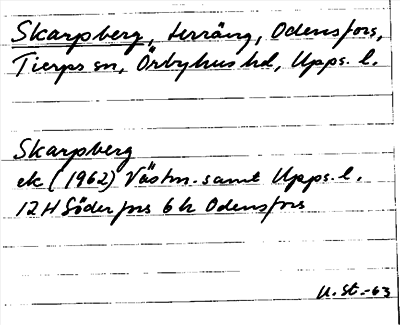 Skarpsberg, terräng, Odensfors,
Tierps sn, Örbyhus hd, Upps. l.
Skarpberg
ek (1962) Västm. samt Upps. l.
12 H Söderfors 6 h Odensfors
U. St. -63